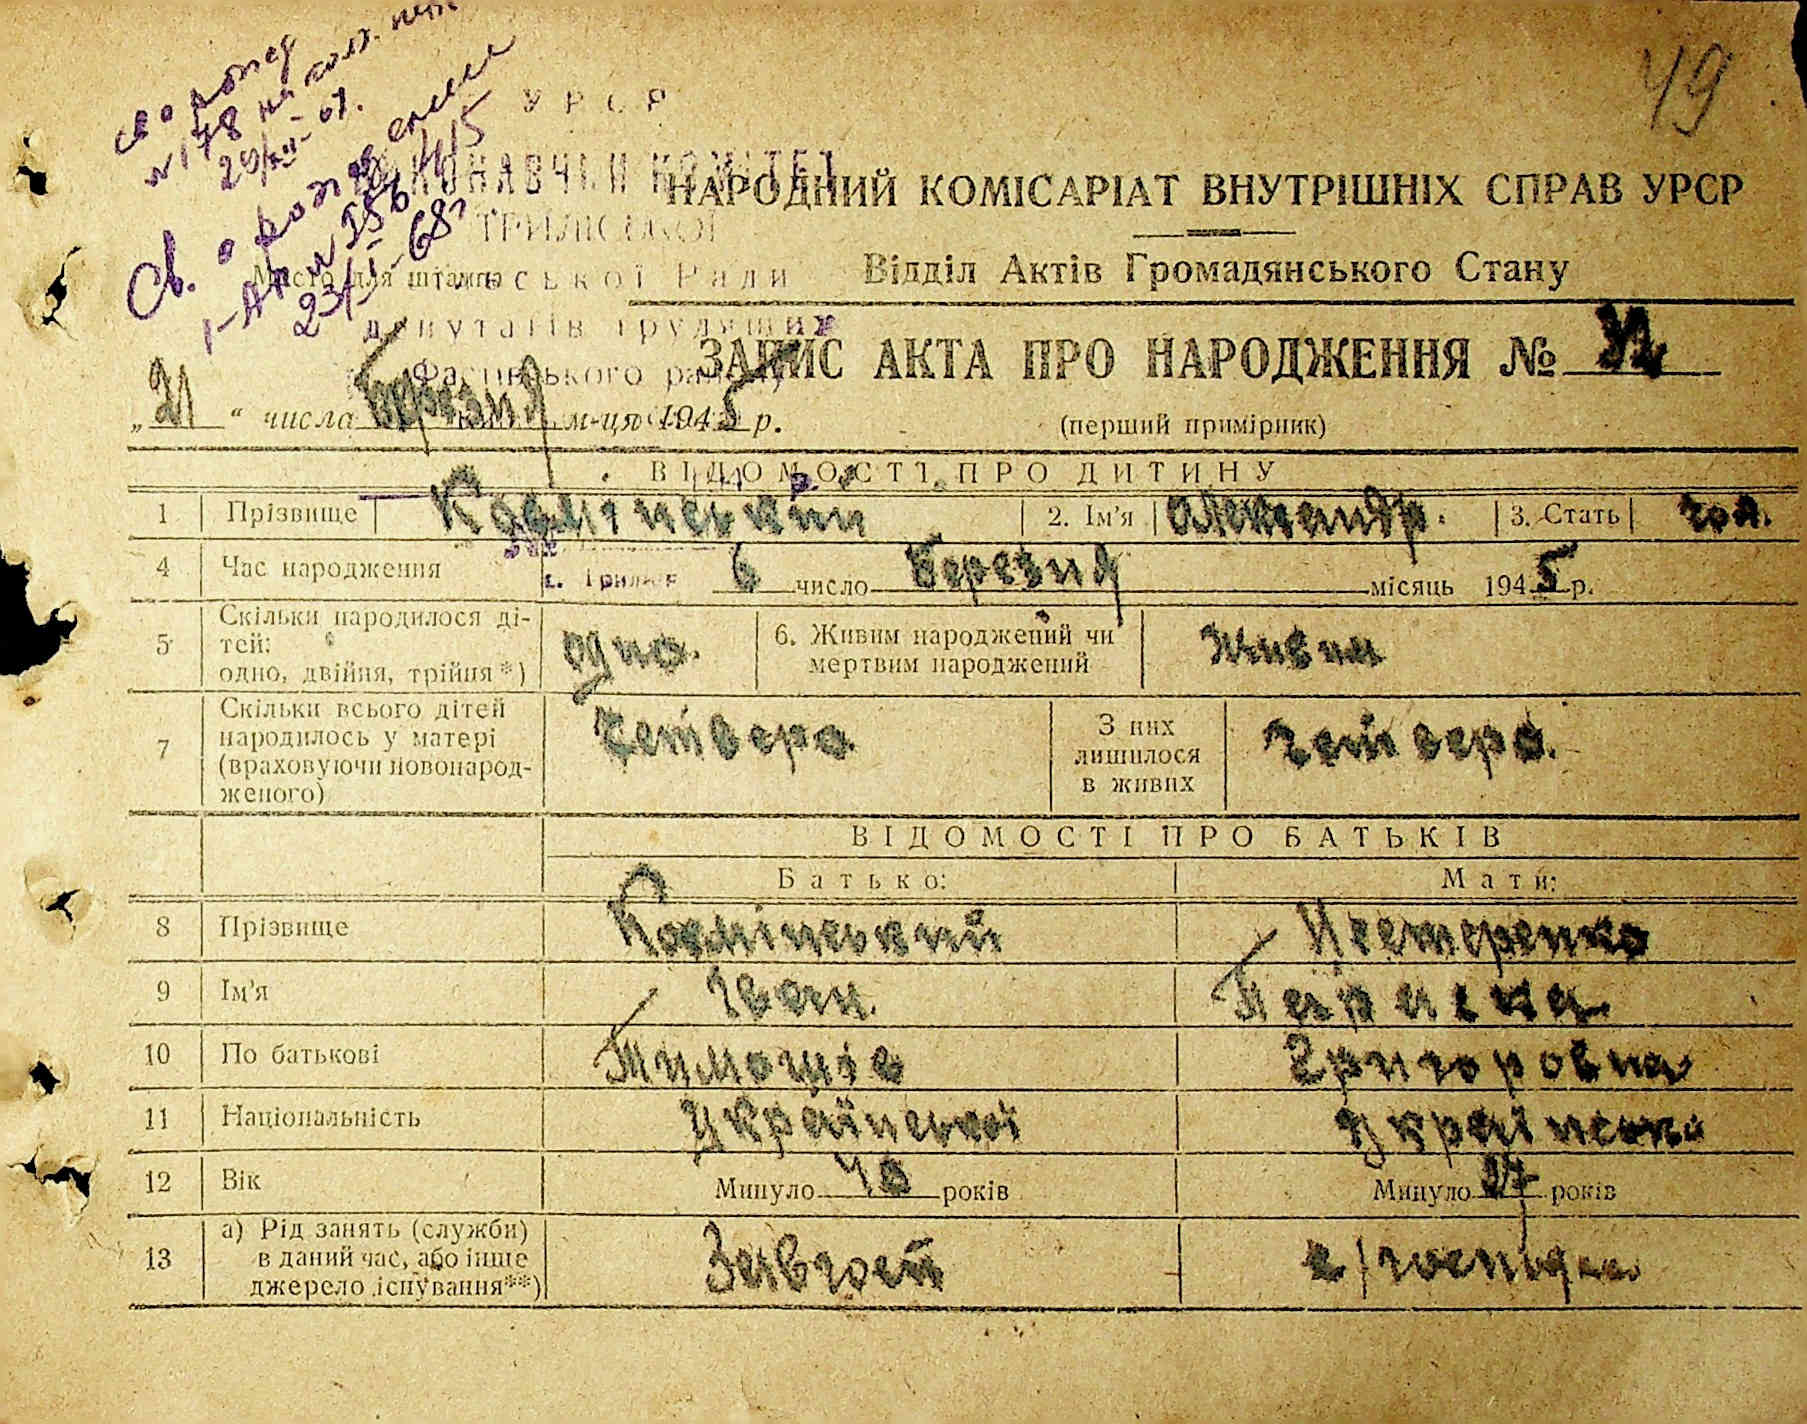 49
св о
N 178 на
29/XII-67.
Св. о рожд
I-АР N 256415
23/I-68г
УРСР
ВИКОНАВЧИЙ КОМІТЕТ
ТРИЛІСЬКОЇ
сільської Ради
депутатів трудящих
Фастівського району
НАРОДНИЙ КОМІСАРІАТ ВНУТРІШНІХ СПРАВ УРСР
Місто для штампа
Відділ Актів Громадянського Стану
ЗАПИС АКТА ПРО НАРОДЖЕННЯ №
„21“ числа березня м-ця 1945 р.
(перший примірник)
ВІДОМОСТІ ПРО ДИТИНУ
1 Прізвище 2. Ім'я Олександр. 3. Стать чол.
4 Час народження 6 число березня місяць 1945 р.
5 Скільки народилося ді-
тей:
одно, двійня, трійня*) одно. 6. Живим народжений чи
мертвим народжений живим
7 Скільки всього дітей
народилось у матері
(враховуючи новонарод-
женого) четверо З них
лишилося
в живих четверо.
ВІДОМОСТІ ПРО БАТЬКІВ
Батько: Мати:
8 Прізвище Нестеренко
9 Ім'я Іван. Параска
10 По батькові Тимошів Григоровна
11 Національність Української Українська
12 Вік Минуло 40 років Минуло 37 років
13 а) Рід занять (служби)
в даний час, або інше
джерело існування**)